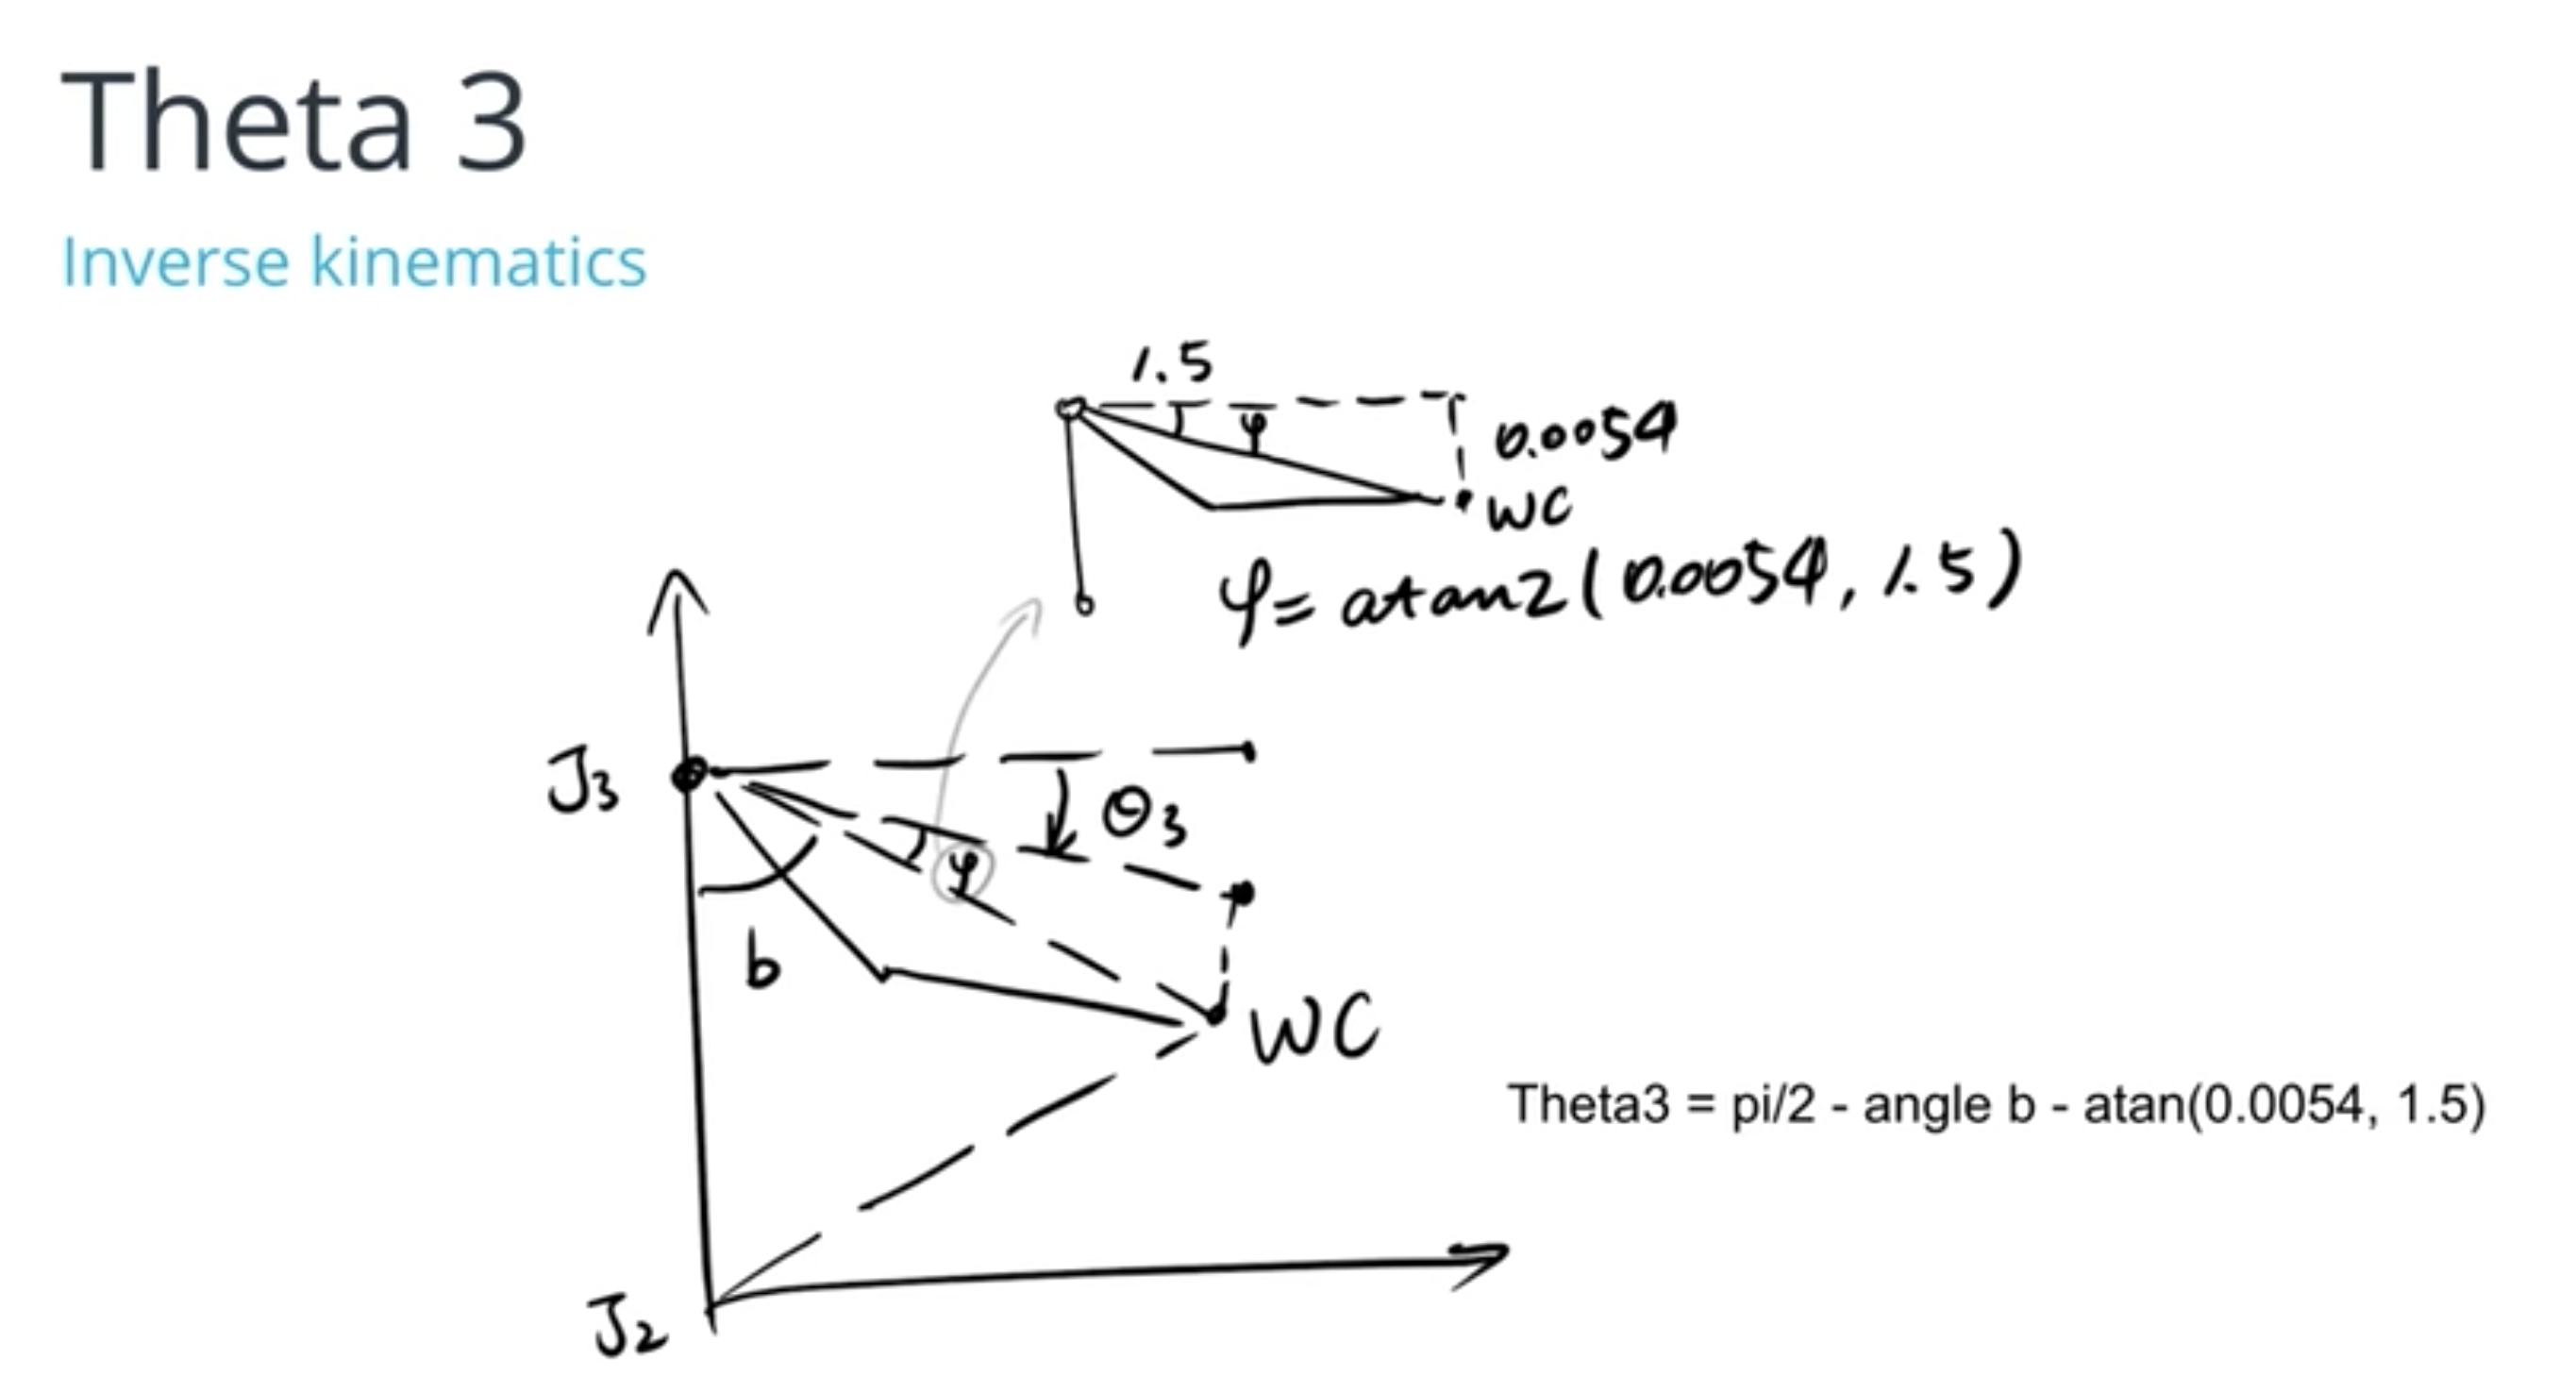 Theta 3
Inverse kinematics
1.5
φ
0.0054
WC
φ = atan2(0.0054, 1.5)
J3
θ3
φ
b
WC
Theta3 = pi/2 - angle b - atan(0.0054, 1.5)
J2